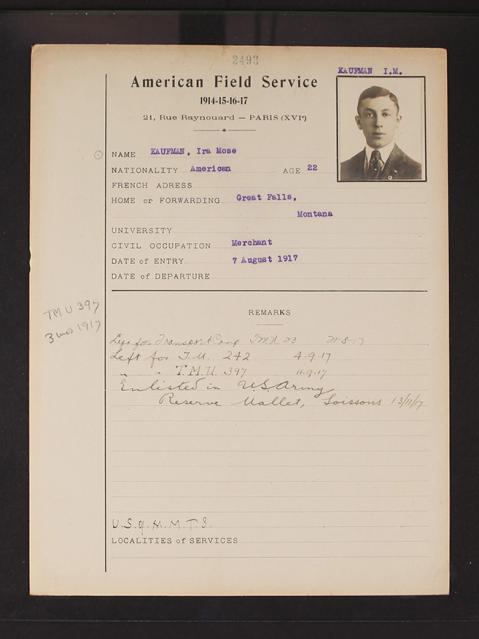 2493
KAUFMAN I.M.
American Field Service
1914-15-16-17
21, Rue Raynouard — PARIS (XVIe)
NAME KAUFMAN, Ira Mose
NATIONALITY American AGE 22
FRENCH ADRESS
HOME or FORWARDING Great Falls,
Montana
UNIVERSITY
CIVIL OCCUPATION Merchant
DATE of ENTRY 7 August 1917
DATE of DEPARTURE
TMU 397
3 1917
REMARKS
for Camp
Left for T.U. 242 4-9-17
" " T.M.U. 397 11-9-17
Enlisted in US Army
Reserve Mallet, Soissons 13/11/17
LOCALITIES of SERVICES